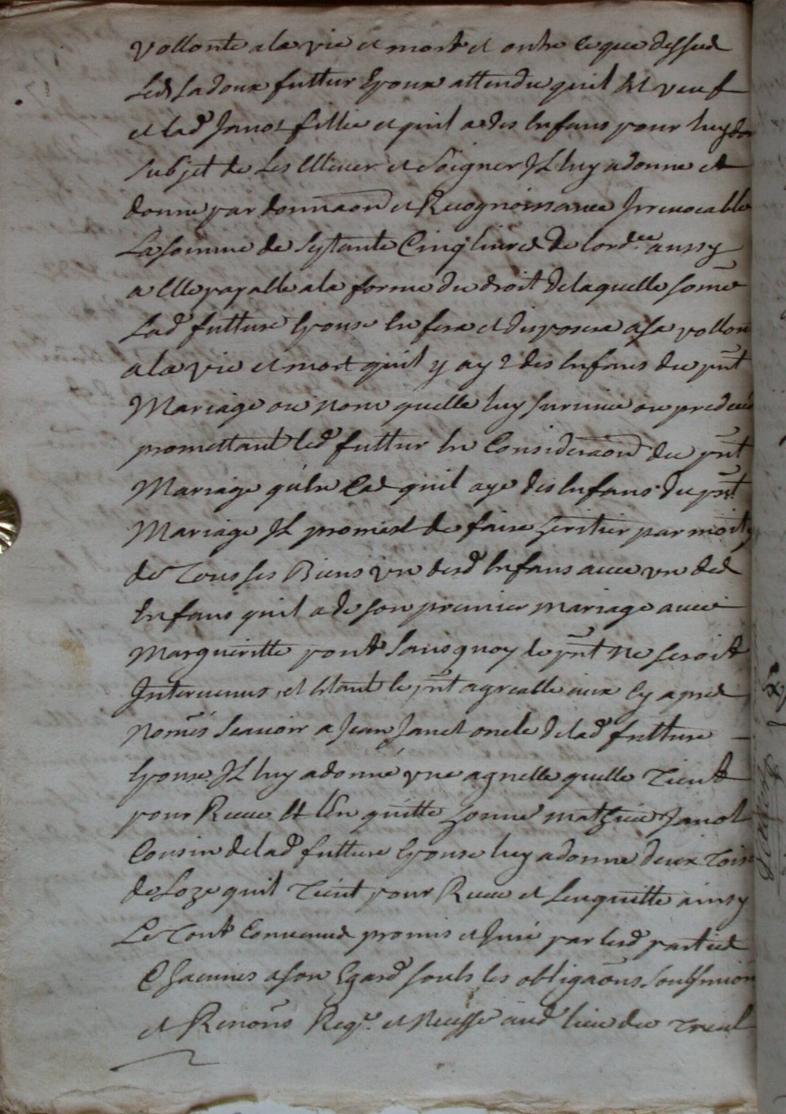 vollonte a la vie et mort et outre ce que dessus
Led Ladoux futtur Epoux attendu quil Est veuf
et lad Janot fillie et quil a des Enfans pour luy
subjet de Les Ellever et Soigner Il luy a donne et
donne par donnaon et Recognoissance Irrevocable
La somme de Septante Cinq livres de lord.re aussy
a Elle payalle a la forme du droit de laquelle somē
Lad futture Epouse En fera et disposera a sa vollon
a la vie et mort quil y aye des Enfans du pnt
Mariage ou non quelle luy survive ou predec
promettant led futtur En Consideraon du pnt
Mariage qu'En Cas quil aye des Enfans du pnt
Mariage Il promest de faire heritier par moity
de Tous ses Biens vn desd Enfans avec vn des
Enfans quil a de son premier mariage avec
Margueritte pont Sans quoy le pnt Ne seroit
Intervenus, et Estant le pnt agrealle aux Cy apres
Nomēs scavoir a Jean Janot oncle de lad futture
Epouse Il luy a donné vne agnelle quelle Tient
pour Receue Et L'En quitte comme Mathieu Janot
Cousin de lad futture Epouse luy a donne deux Tois
de Loze quil Tient pour Receu et Lenquitte ainsy
Le Tout Convenus promis et Juré par lesd parties
Chacunes a son Egard soubs les obligaōns, soubmission
et Renōns Reqs. et Necesse aud lieu du Treul